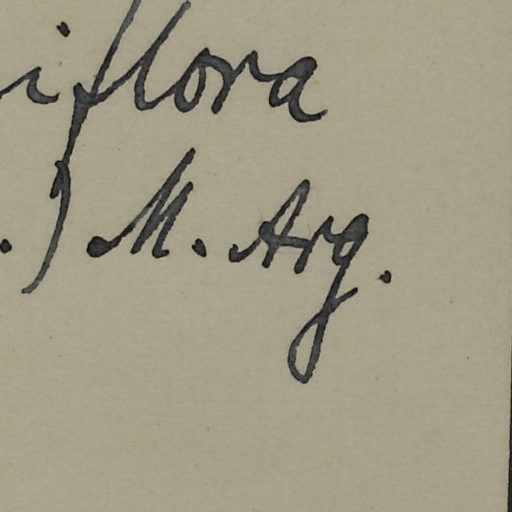 iflora
.) M. Arg.